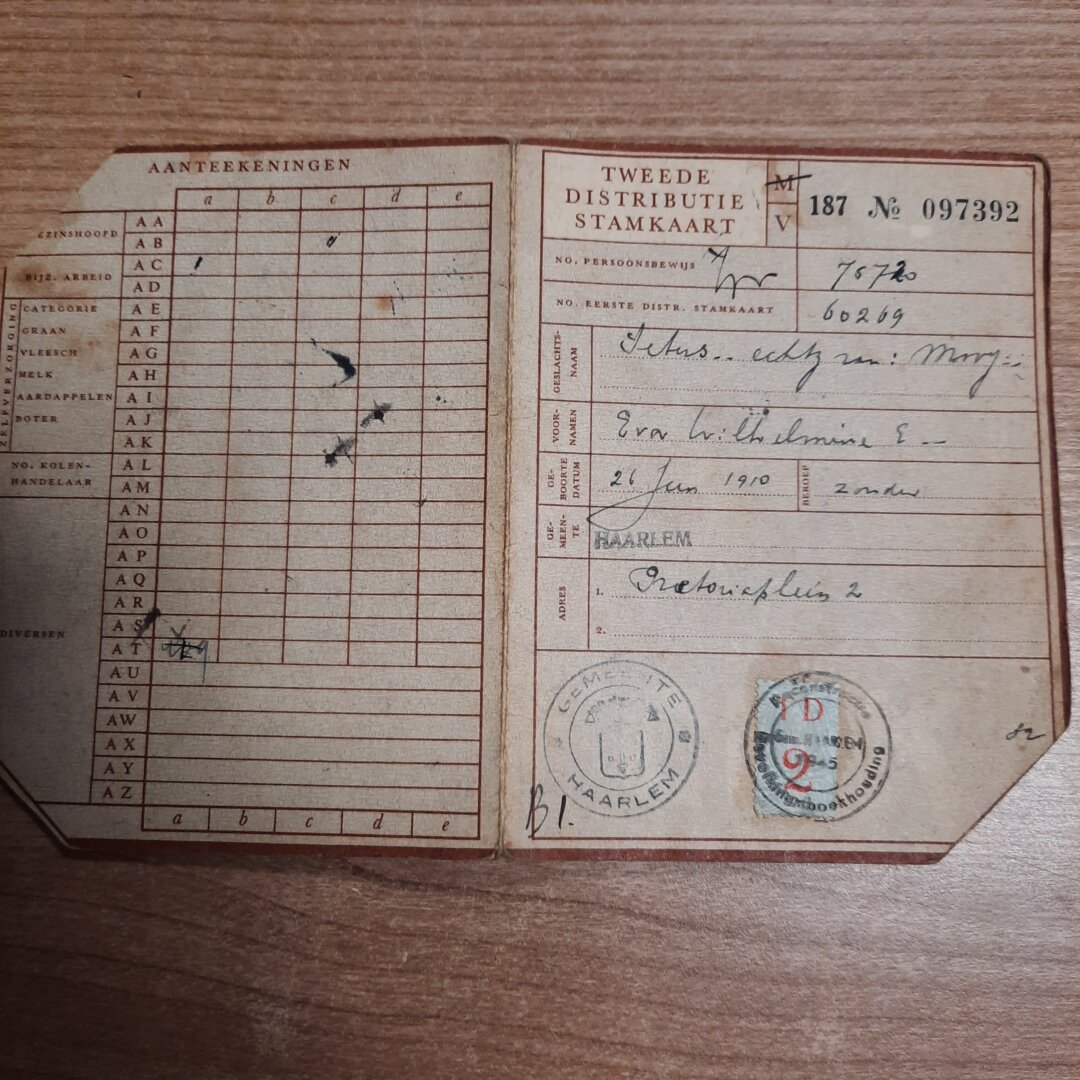 AANTEEKENINGEN
a b c d e
EZINSHOOFD
AA
AB
BIJZ. ARBEID
AC
AD
ZELFVERZORGING
CATEGORIE AE
GRAAN AF
VLEESCH AG
MELK AH
AARDAPPELEN AI
BOTER AJ
AK
NO. KOLEN-
HANDELAAR
AL
AM
AN
AO
AP
AQ
AR
DIVERSEN
AS
AT
AU
AV
AW
AX
AY
AZ
a b c d e
TWEEDE
DISTRIBUTIE
STAMKAART
M
V
187 № 097392
NO. PERSOONSBEWIJS
NO. EERSTE DISTR. STAMKAART 60269
GESLACHTS-
NAAM
echtg van:
VOOR-
NAMEN
Eva Wilhelmine E
GE-
BOORTE
DATUM
26 Jun 1910
BEROEP
zonder
GE-
MEEN-
TE
HAARLEM
ADRES
1. Pretoriaplein 2
2.
GEMEENTE
HAARLEM
TD
2
Bevolkingsboekhouding
B1.
82